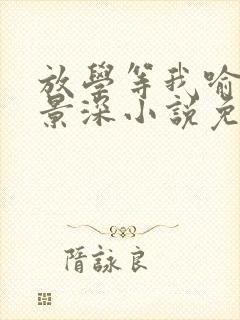 放學等我喻
景深小説免
隋詠良